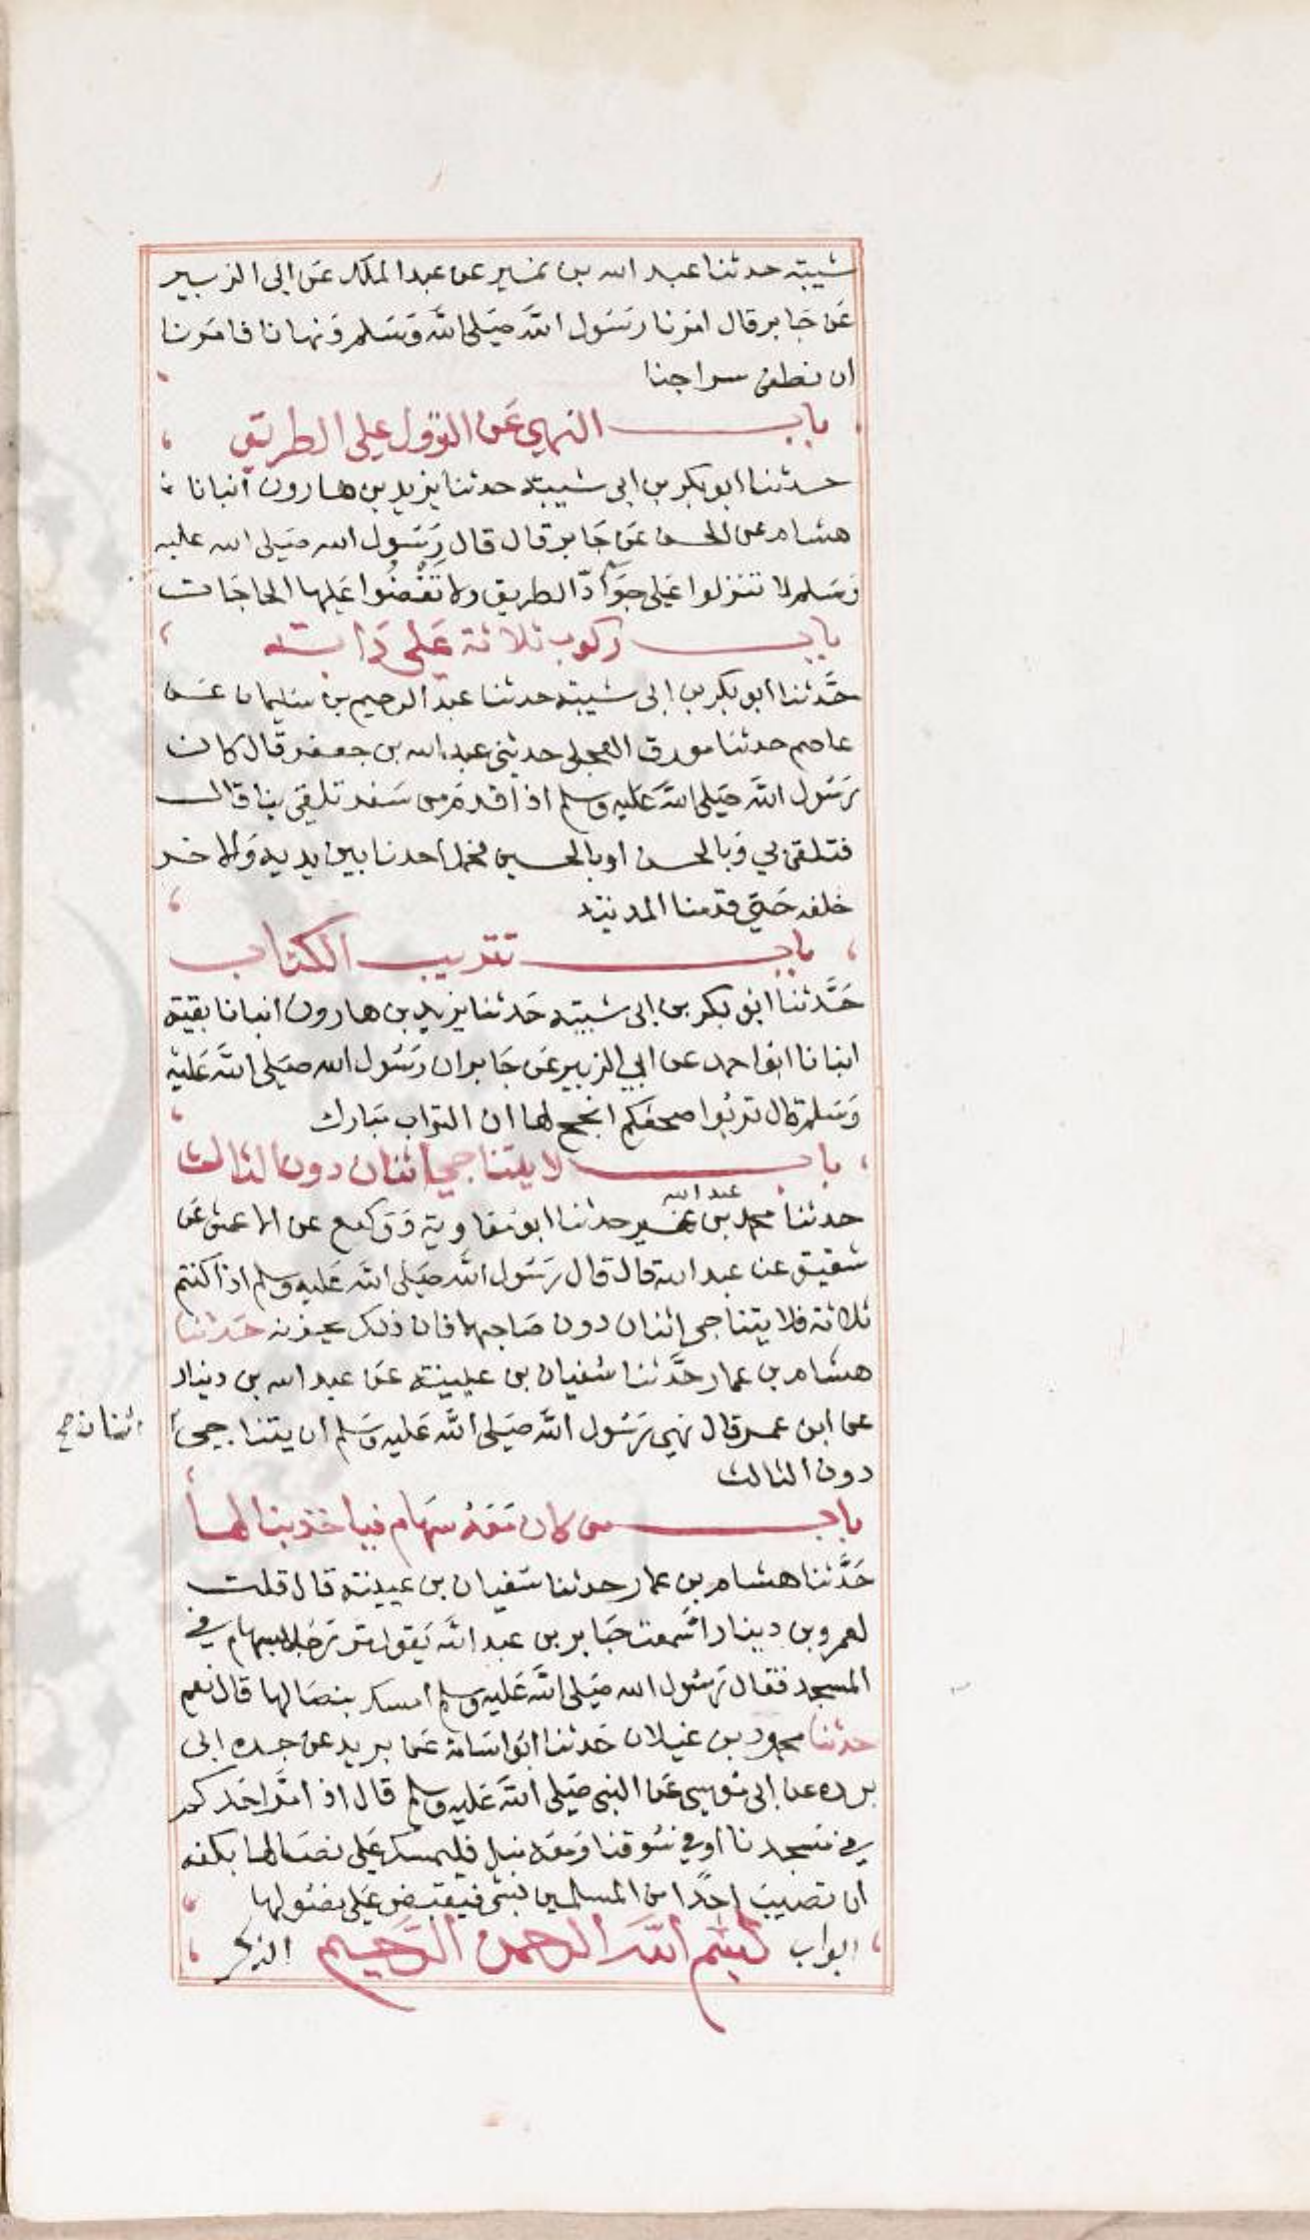 شيبة حدثنا عبد الله بن نمير عن عبد الملك عن ابى الزبير
عَن جَابر قال امَرنا رسَول الله صَلى الله وَسَلم وَنهانا فامَرنا
ان نطفئ سراجنا
باب النهي عَن النزول على الطريق
حدثنا ابو بكر بن ابى شيبة حدثنا يزيد بن هارون انبانا
هشام عن الحسن عَن جَابر قال قال رَسَول الله صَلى الله عليه
وَسَلم لا تنزلوا عَلى جَوَادّ الطريق ولا تَقْضُوا عَليها الحاجَات
باب ركوب ثلاثة عَلى دَابة
حَدَّثنا ابو بكر بن ابى شيبة حدثنا عبد الرحيم بن سَليمان عَن
عاصم حدثنا مورق العجلى حدثنى عبد الله بن جعفر قال كان
رَسُول الله صَلى الله عَليه وسلم اذا قدم من سَفر تلقى بنا قال
فتلقى بي وَبالحسن او بالحسين فحمل احدنا بين يديه وَالاخر
خلفه حَتى قدمنا المدينة
باب تتريب الكتاب
حَدَّثنا ابو بكر بن ابى شيبة حَدثنا يزيد بن هارون انبانا بقية
انبانا ابو احمد عن ابي الزبير عَن جَابر ان رَسُول الله صَلى الله عَليه
وَسَلم قال تربُوا صحفكم انجح لها ان التراب مَبارك
باب لا يتناجي اثنان دون الثالث
عبد الله
حدثنا محمد بن نمير حدثنا ابو مَعَاوية وَوكيع عن الاعمش عَن
شقيق عن عبد الله قال قال رَسُول الله صَلى الله عَليه وسلم اذا كنتم
ثلاثة فلا يتناجى اثنان دون صَاحبهما فان ذلك يحزنه حَدثنا
هشام بن عمار حَدَّثنا سُفيان بن عيينة عَن عبد الله بن دينار
عن ابن عمر قال نهى رَسُول الله صَلى الله عَليه وَسَلم ان يتناجى
اثنان صح
دون الثالث
باب من كان مَعَهُ سَهام فلياخذ بنصالها
حَدَّثنا هشام بن عمار حدثنا سُفيان بن عيينة قال قلت
لعمرو بن دينار اسَمعت جَابر بن عبد الله يَقول مَر رَجُل بسهام في
المسجد فقال رَسُول الله صَلى الله عَليه وسلم امسك بنصَالها قال نعم
حدثنا محمود بن غيلان حَدثنا ابو اسَامة عَن بريد عن جده ابى
برده عن ابى مُوسى عَن النبى صَلى الله عَليه وسلم قال اذا مَرّ احَدكم
في مَسجدنا او في سُوقنا وَمعَه نبل فليمسك عَلى نصَالها بكفه
ان تصيبَ احدًا من المسلمين بشى فيقبض عَلى نصُولها
ابواب بسم الله الرحمن الرَّحيم الذكر